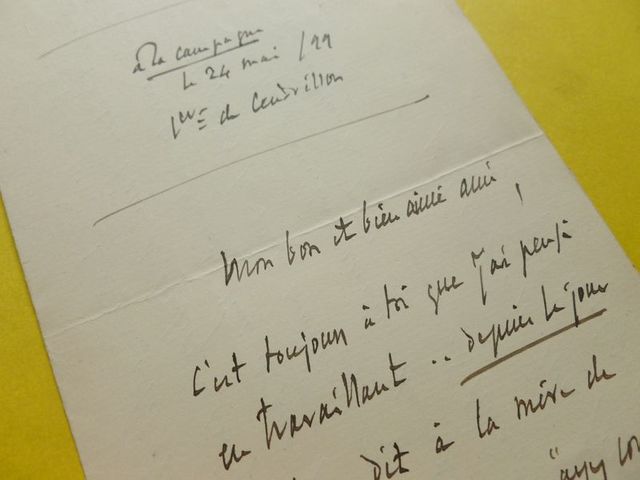 à la campagne
le 24 mai /99
1ère de Cendrillon
Mon bon et bien aimé ami,
C'est toujours à toi que j'ai pensé
en travaillant .. depuis le jour
dit à la mère de